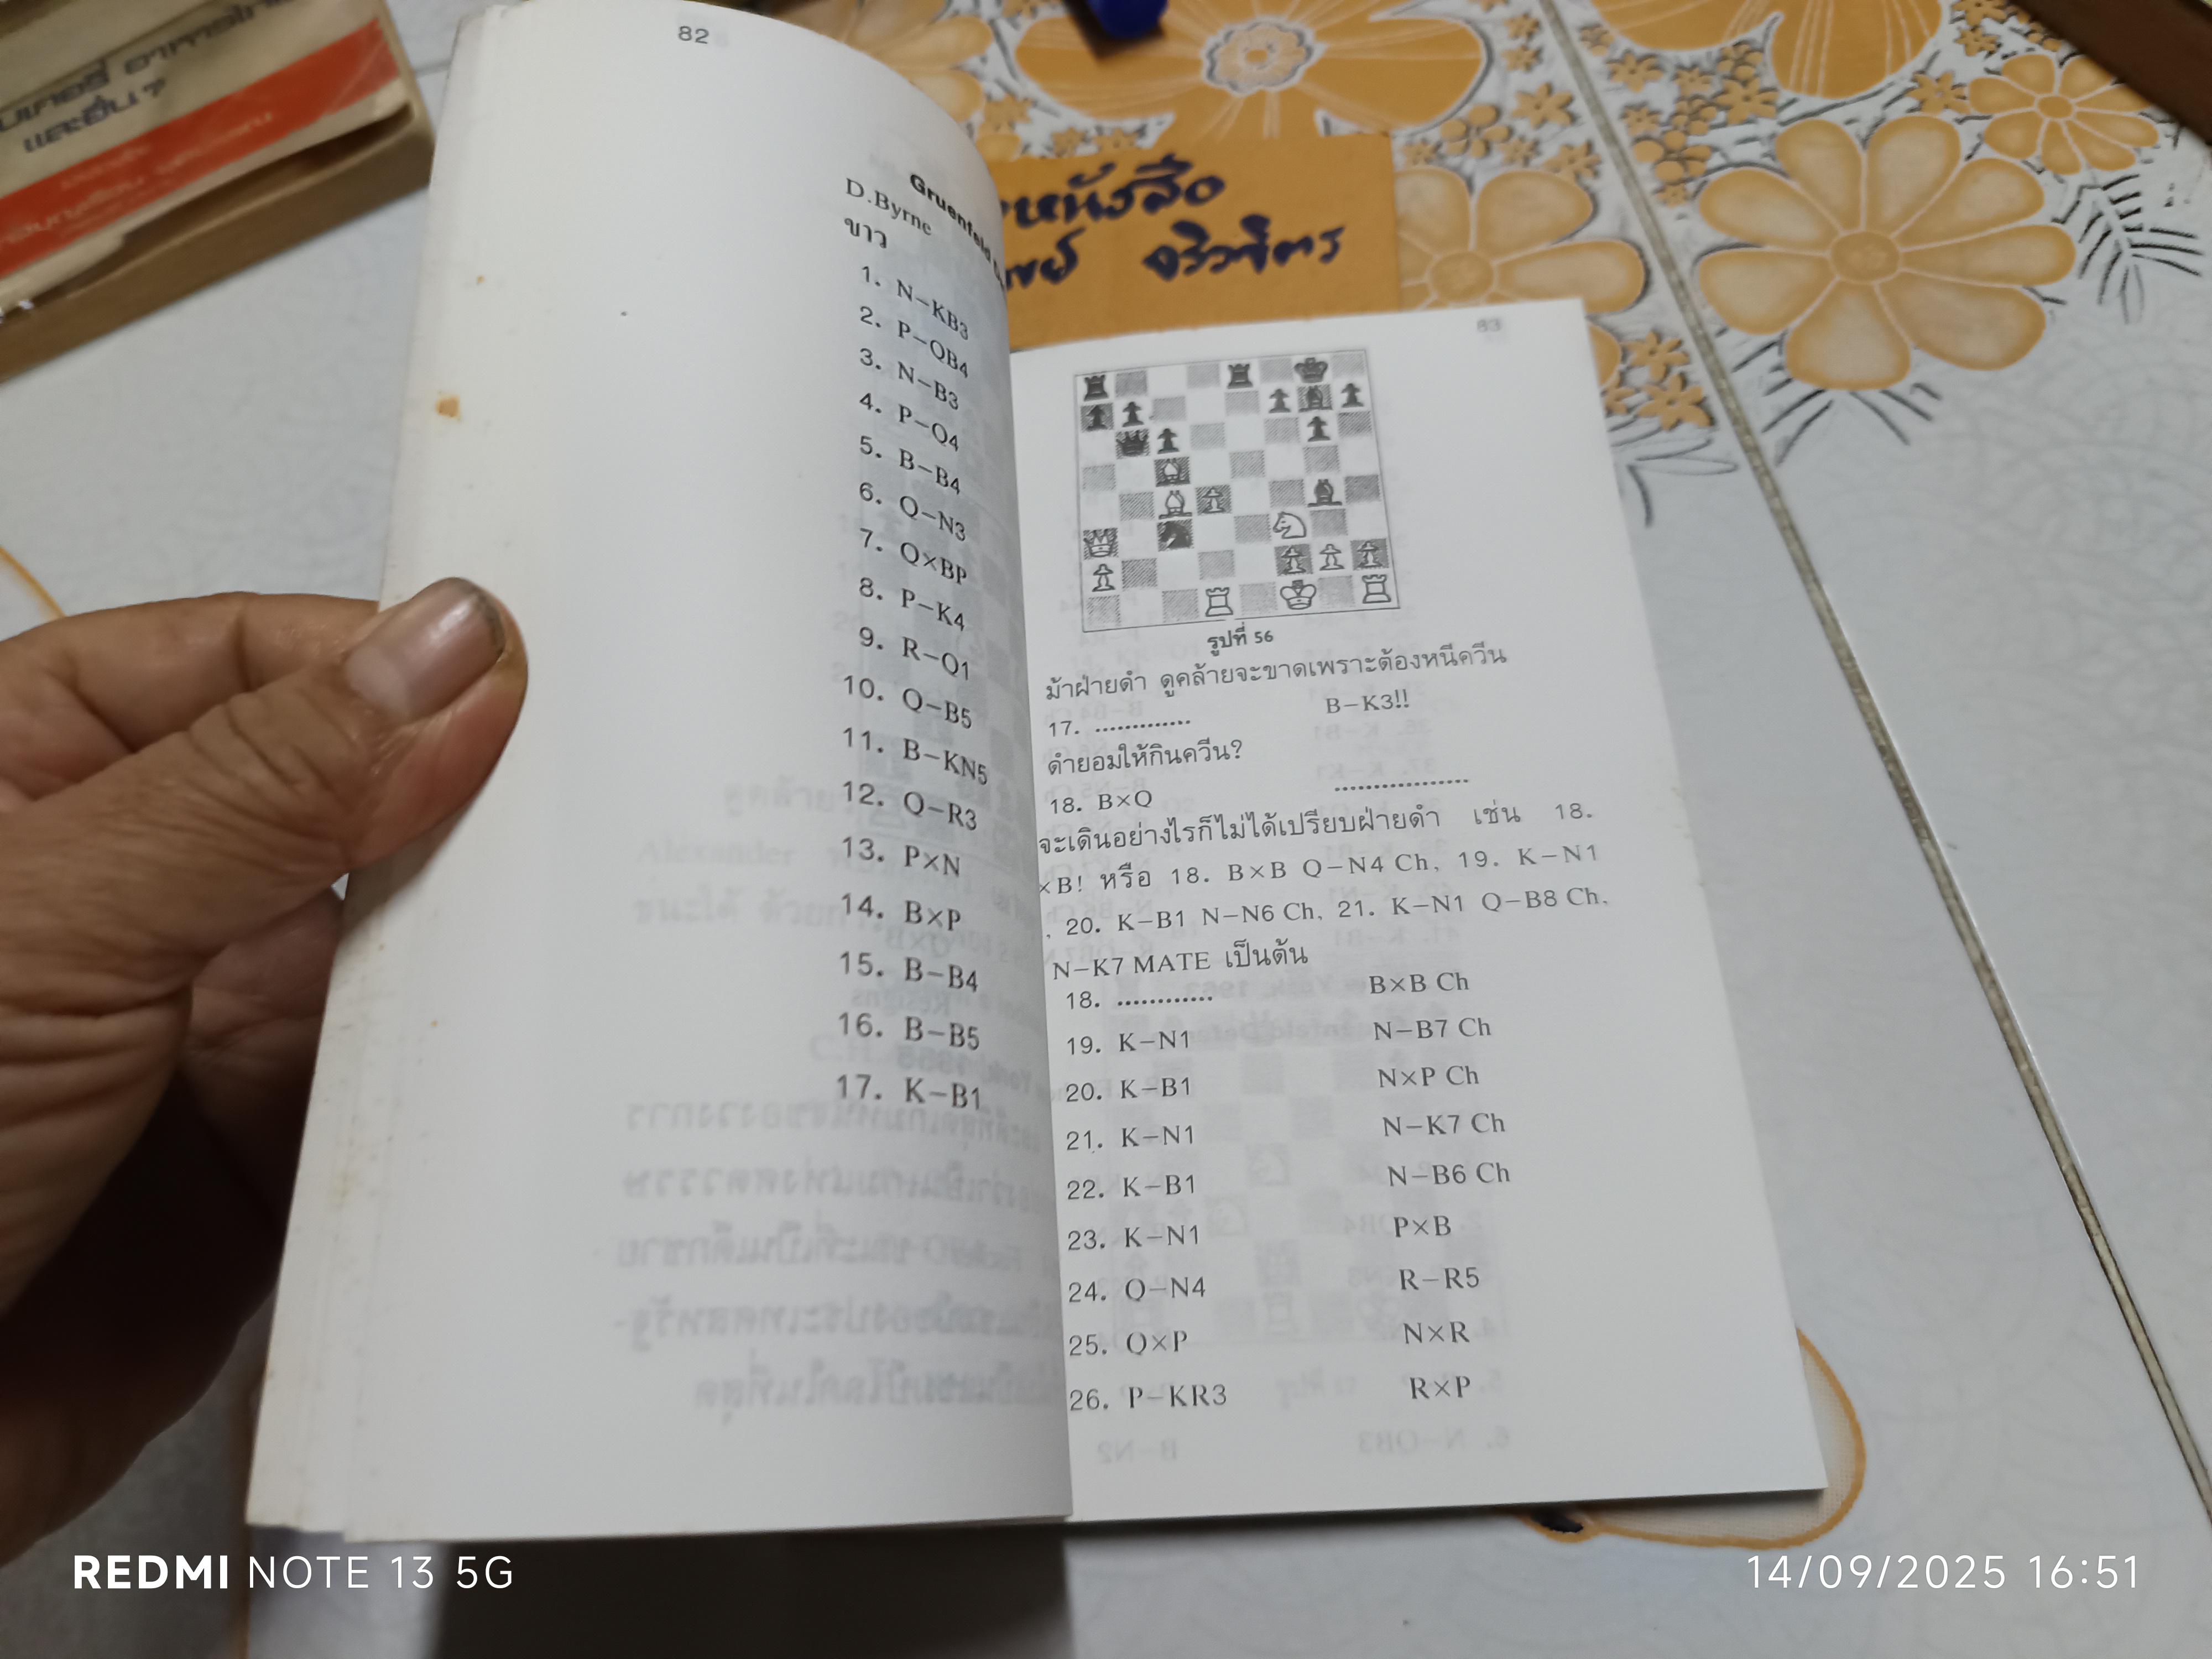 และยืน?
82
Gruenfeld
D.Byrne
ขาว
1. N–KB3
2. P–QB4
3. N–B3
4. P–Q4
5. B–B4
6. Q–N3
7. Q×BP
8. P–K4
9. R–Q1
10. Q–B5
11. B–KN5
12. Q–R3
13. P×N
14. B×P
15. B–B4
16. B–B5
17. K–B1
หนังสือ
83
รูปที่ 56
ม้าฝ่ายดำ ดูคล้ายจะขาดเพราะต้องหนีควีน
17. ............. B–K3!!
ดำยอมให้กินควีน?
18. B×Q ..................
จะเดินอย่างไรก็ไม่ได้เปรียบฝ่ายดำ เช่น 18.
×B! หรือ 18. B×B Q–N4 Ch, 19. K–N1
, 20. K–B1 N–N6 Ch, 21. K–N1 Q–B8 Ch,
N–K7 MATE เป็นต้น
18. ............. B×B Ch
19. K–N1 N–B7 Ch
20. K–B1 N×P Ch
21. K–N1 N–K7 Ch
22. K–B1 N–B6 Ch
23. K–N1 P×B
24. Q–N4 R–R5
25. Q×P N×R
26. P–KR3 R×P
REDMI NOTE 13 5G
14/09/2025 16:51